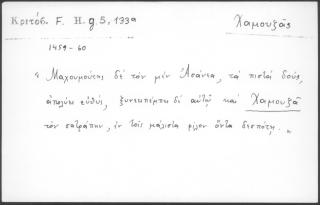 Κριτόβ. F. H. g 5, 133a
Χαμουζᾶς
1459-60
« Μαχουμούτης δὲ τὸν μὲν Ἀσάνεα, τὰ πιστὰ δούς,
ἀπολύει εὐθύς, ξυνεκπέμπει δὲ αὐτῷ καὶ Χαμουζᾶ
τὸν σατράπην, ἐν τοῖς μάλιστα φίλον ὄντα δεσπότῃ. »